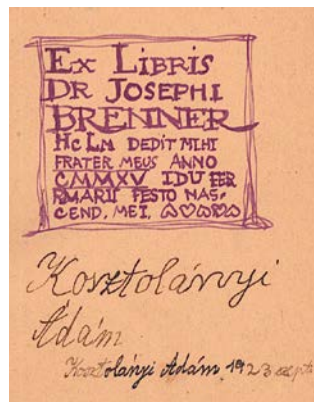 EX LIBRIS
DR JOSEPHI
BRENNER
HC LM DEDIT MIHI
FRATER MEUS ANNO
CMMXV IDU FEB
RMARII FESTO NAS-
CEND. MEI.
Kosztolányi
Ádám
Kosztolányi Ádám 1923 szept